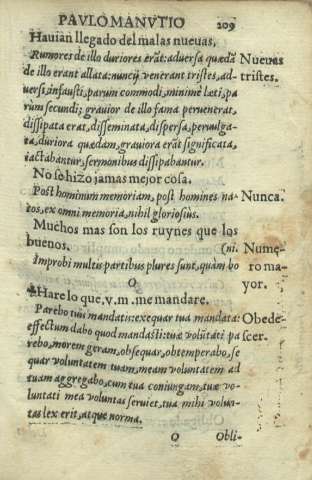 PAVLO MANVTIO 209
Hauian llegado del malas nueuas,
Rumores de illo duriores erãt: aduersa quædã Nueuas
de illo erant allata: nuncij venerant tristes, ad- tristes.
uersi, infausti, parum commodi, minimè læti, pa
rùm secundi; grauior de illo fama peruenerat,
dissipata erat, disseminata, dispersa, peruulga-
ta, duriora quædam, grauiora erãt significata,
iactabantur, sermonibus dissipabantur.
No se hizo jamas mejor cosa.
Post hominum memoriam, post homines na- Nunca.
tos, ex omni memoria, nihil gloriosius.
Muchos mas son los ruynes que los
buenos. (ni. Nume-
Improbi multis partibus plures sunt, quàm bo ro ma-
O yor.
Hare lo que, v. m. me mandare.
Parebo tuis mandatis: exequar tua mandata: Obede-
effectum dabo quod mandasti: tuæ volũtati pa scer.
rebo, morem geram, obsequar, obtemperabo, se
quar voluntatem tuam, meam voluntatem ad
tuam aggregabo, cum tua coniungam, tuæ vo-
luntati mea voluntas seruiet, tua mihi volun-
tas lex erit, atque norma.
O Obli-